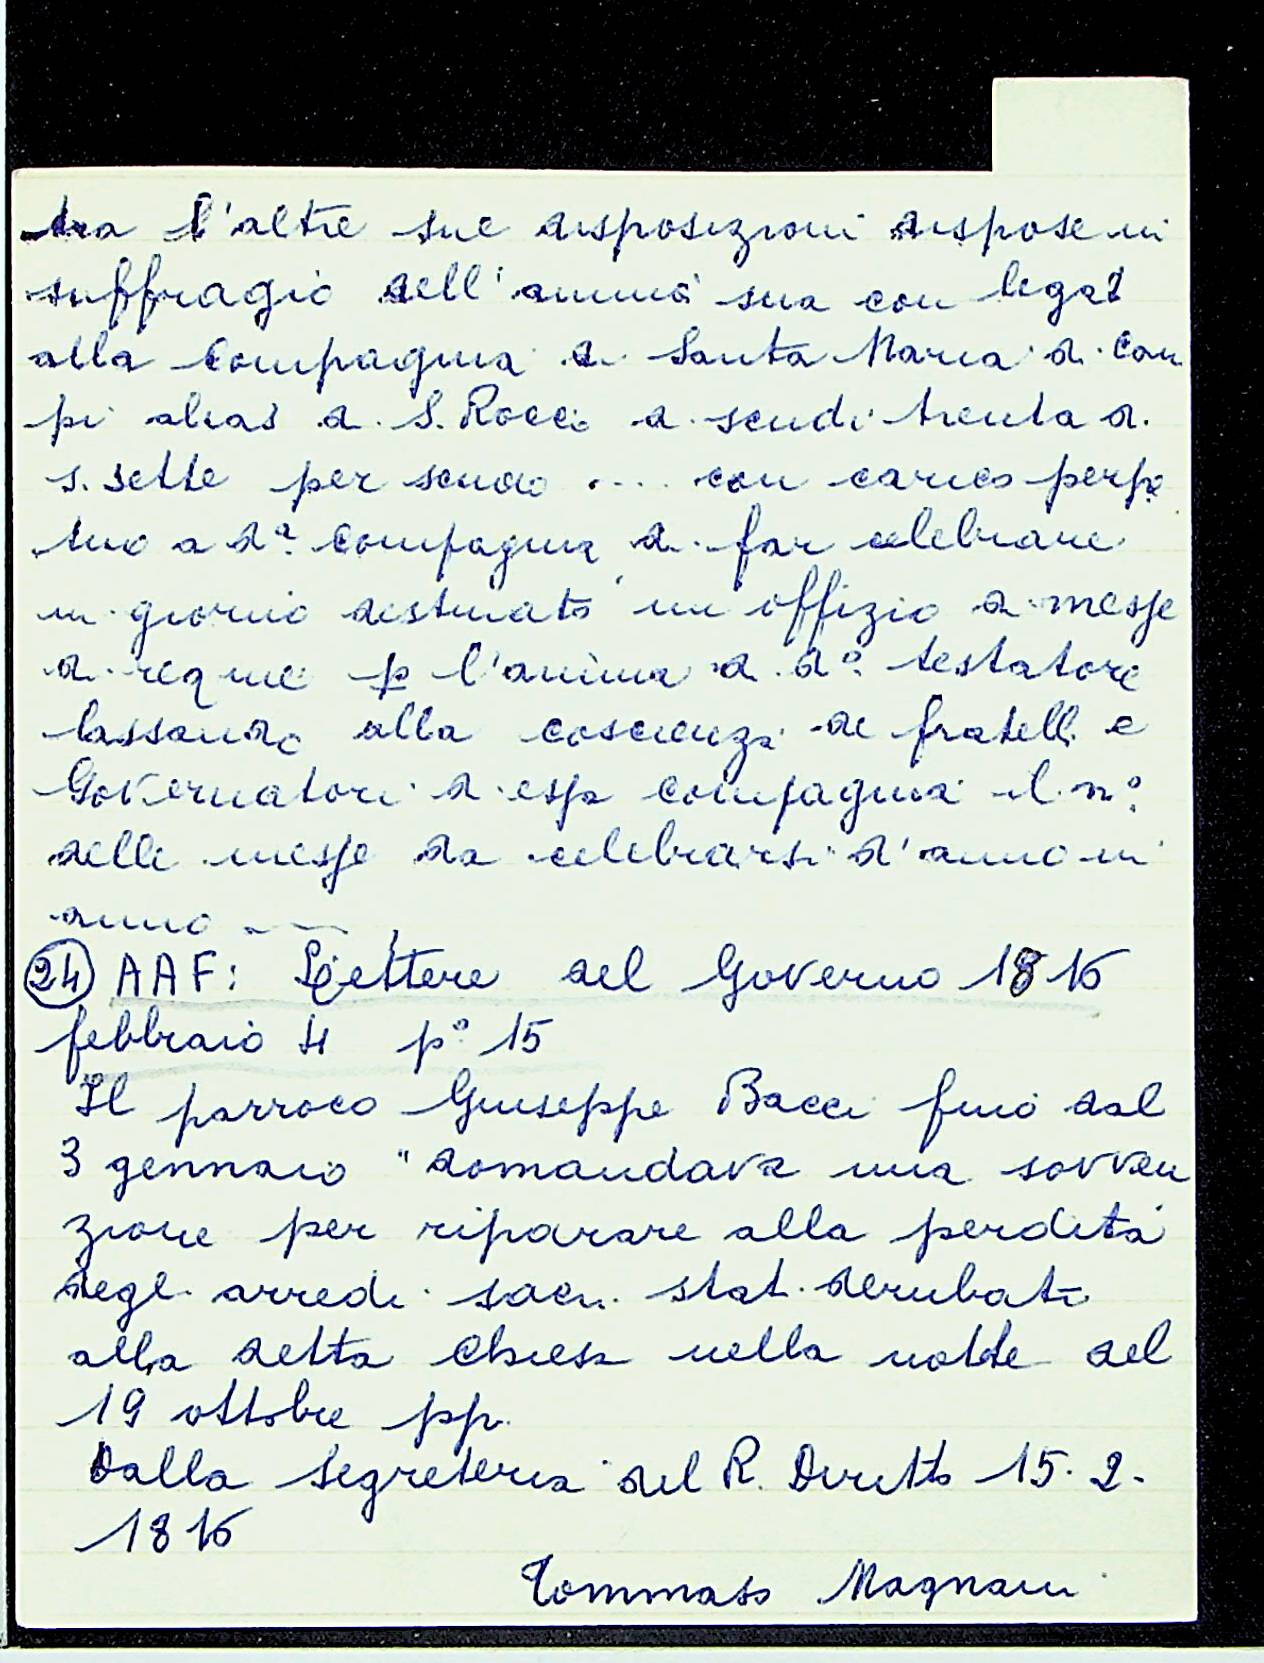 tra l'altre sue disposizioni dispose in
suffragio dell'anima sua con legat
alla Compagnia di Santa Maria di Cam
pi alias di S. Rocco di scudi trenta di
s. sette per scudo .... con carico perpe
tuo a dª. Compagnia di far celebrare
in giorno destinato un offizio di messe
di requie p l'anima di dº. testatore
lassando alla coscienza de fratelli e
Governatori di essa compagnia il nº
delle messe da celebrarsi d'anno in
anno ——
24 AAF: Lettere del Governo 1816
febbraio 4 pº 15
Il parroco Giuseppe Bacci fino dal
3 gennaio "domandava una sovven
zione per riparare alla perdita
degli arredi sacri stati derubati
alla detta Chiesa nella notte del
19 ottobre pp.
Dalla Segreteria del R. Diritto 15. 2.
1816
Tommaso Magnani